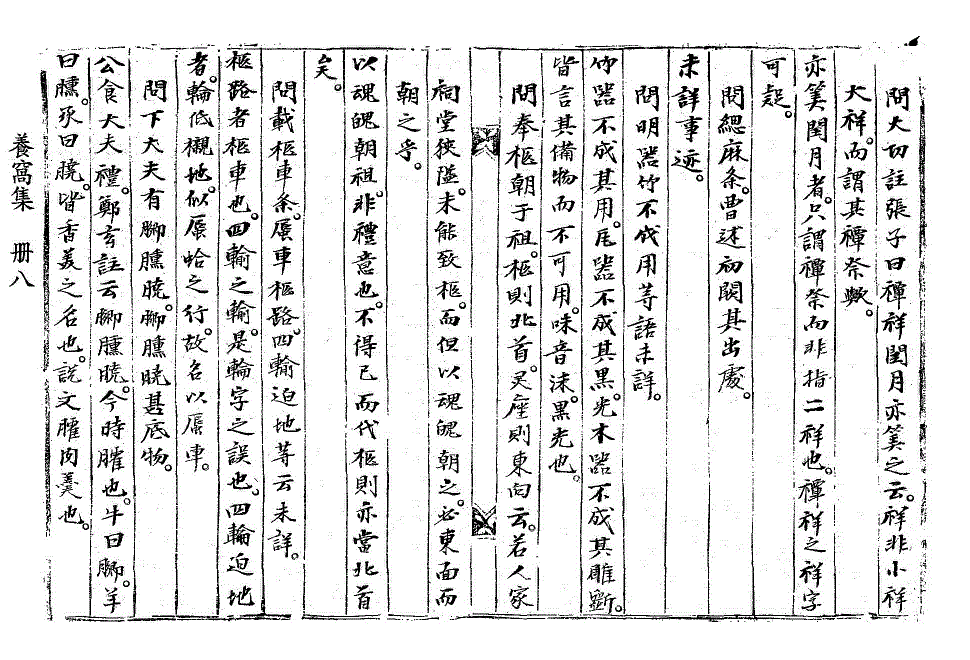 問大功註張子曰禫祥閏月亦筭之云祥非小祥
大祥而謂其禫祭歟
亦筭閏月者只謂禫祭而非指二祥也禫祥之祥字
可疑
問緦麻条曹述初關其出處
未詳事迹
問明器竹不成用等語未詳
竹器不成其用瓦器不成其黑光木器不成其雕斵
皆言其備物而不可用味音沬黑光也
問奉柩朝于祖柩則北首灵座則東向云若人家
祠堂狹隘未能致柩而但以魂魄朝之必東面而
朝之乎
以魂魄朝祖非禮意也不得已而代柩則亦當北首
矣
問載柩車条蜃車柩路四輪迫地等云未詳
柩路者柩車也四輸之輸是輪字之誤也四輪迫地
者輪低襯地似蜃蛤之行故名以蜃車
問下大夫有膷臐膮膷臐膮甚底物
公食大夫禮鄭玄註云膷臐膮今時臛也牛曰膷羊
曰臐豕曰膮皆香美之名也說文臛肉羹也
養窩集　冊八